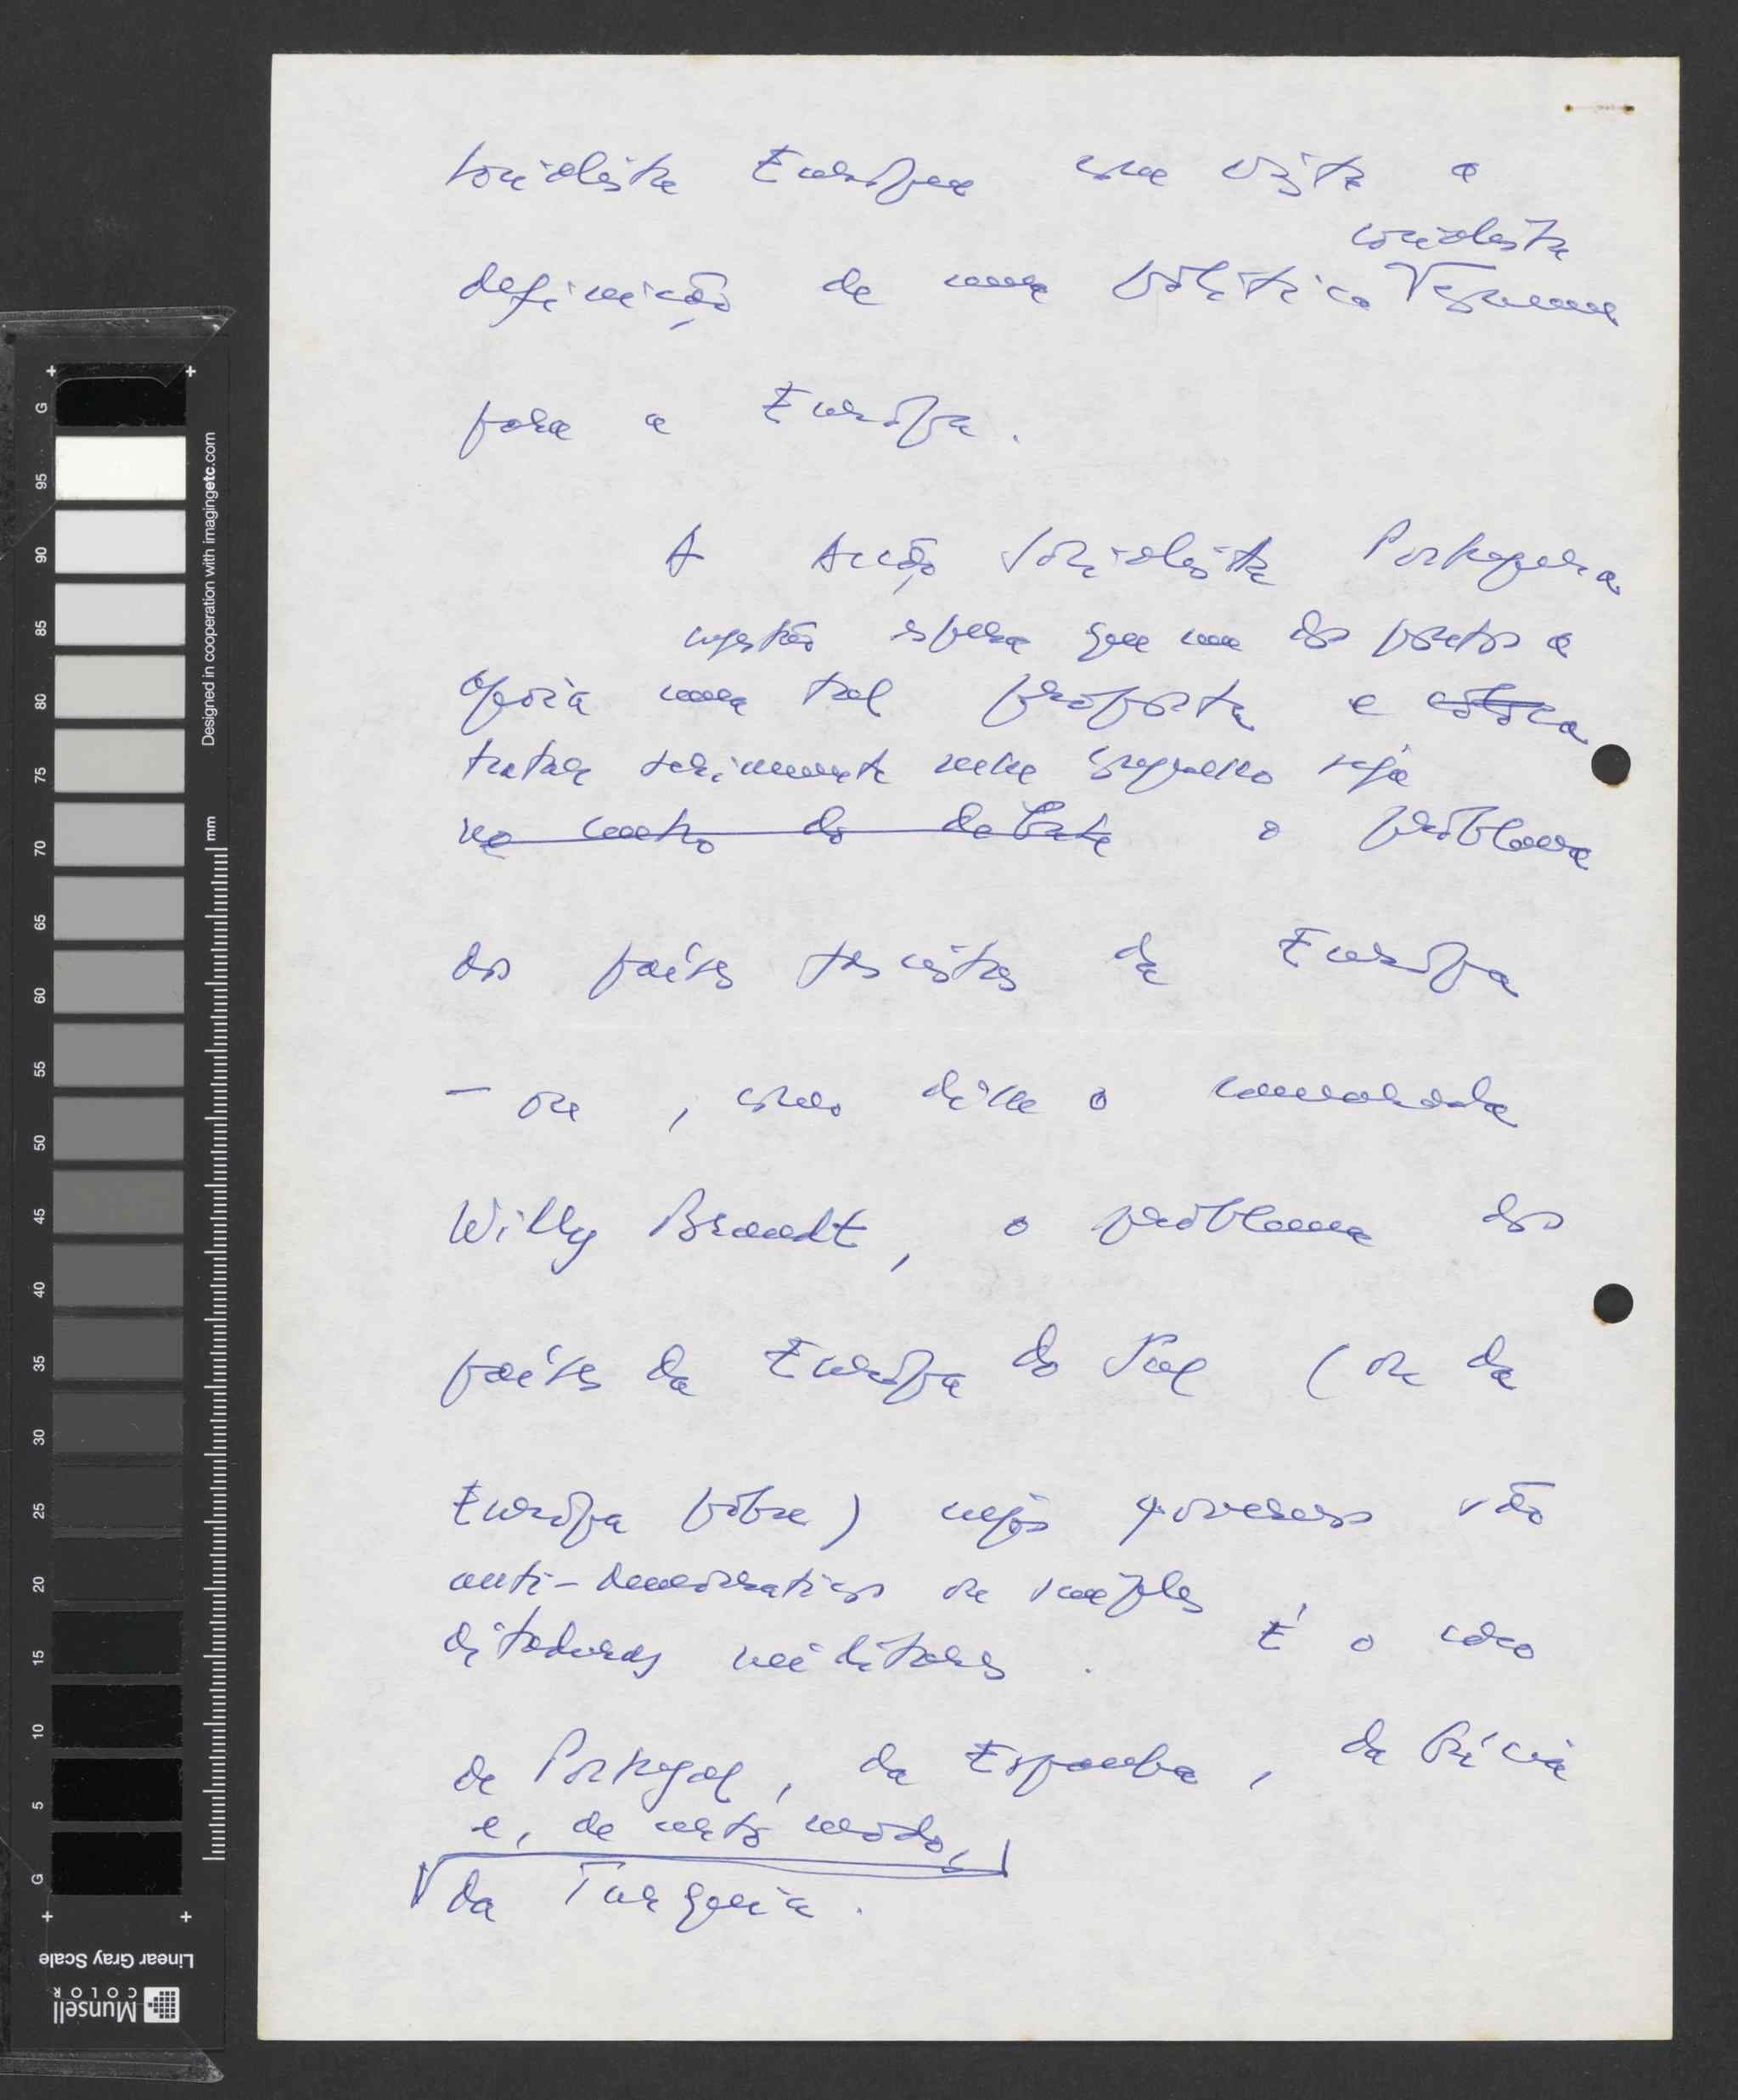 socialista Europeu com vista a
socialista
definição de uma política comum
para a Europa.
A Acção Socialista Portuguesa
espera que um dos pontos a
apoia uma tal proposta e coloca
tratar seriamente nesse seja
no centro do debate o problema
dos países fascistas da Europa
– ou, como disse o camarada
Willy Brandt, o problema dos
países da Europa do Sul (ou da
Europa pobre) cujos governos são
anti-democraticos ou simples
ditaduras militares. É o caso
de Portugal, da Espanha, da Grécia
e, de certo modo,
da Turquia.
G
95
90
85
80
75
70
65
60
55
50
45
40
35
30
25
20
15
10
5
G
Designed in cooperation with imagingetc.com
mm
Linear Gray Scale
Munsell
COLOR